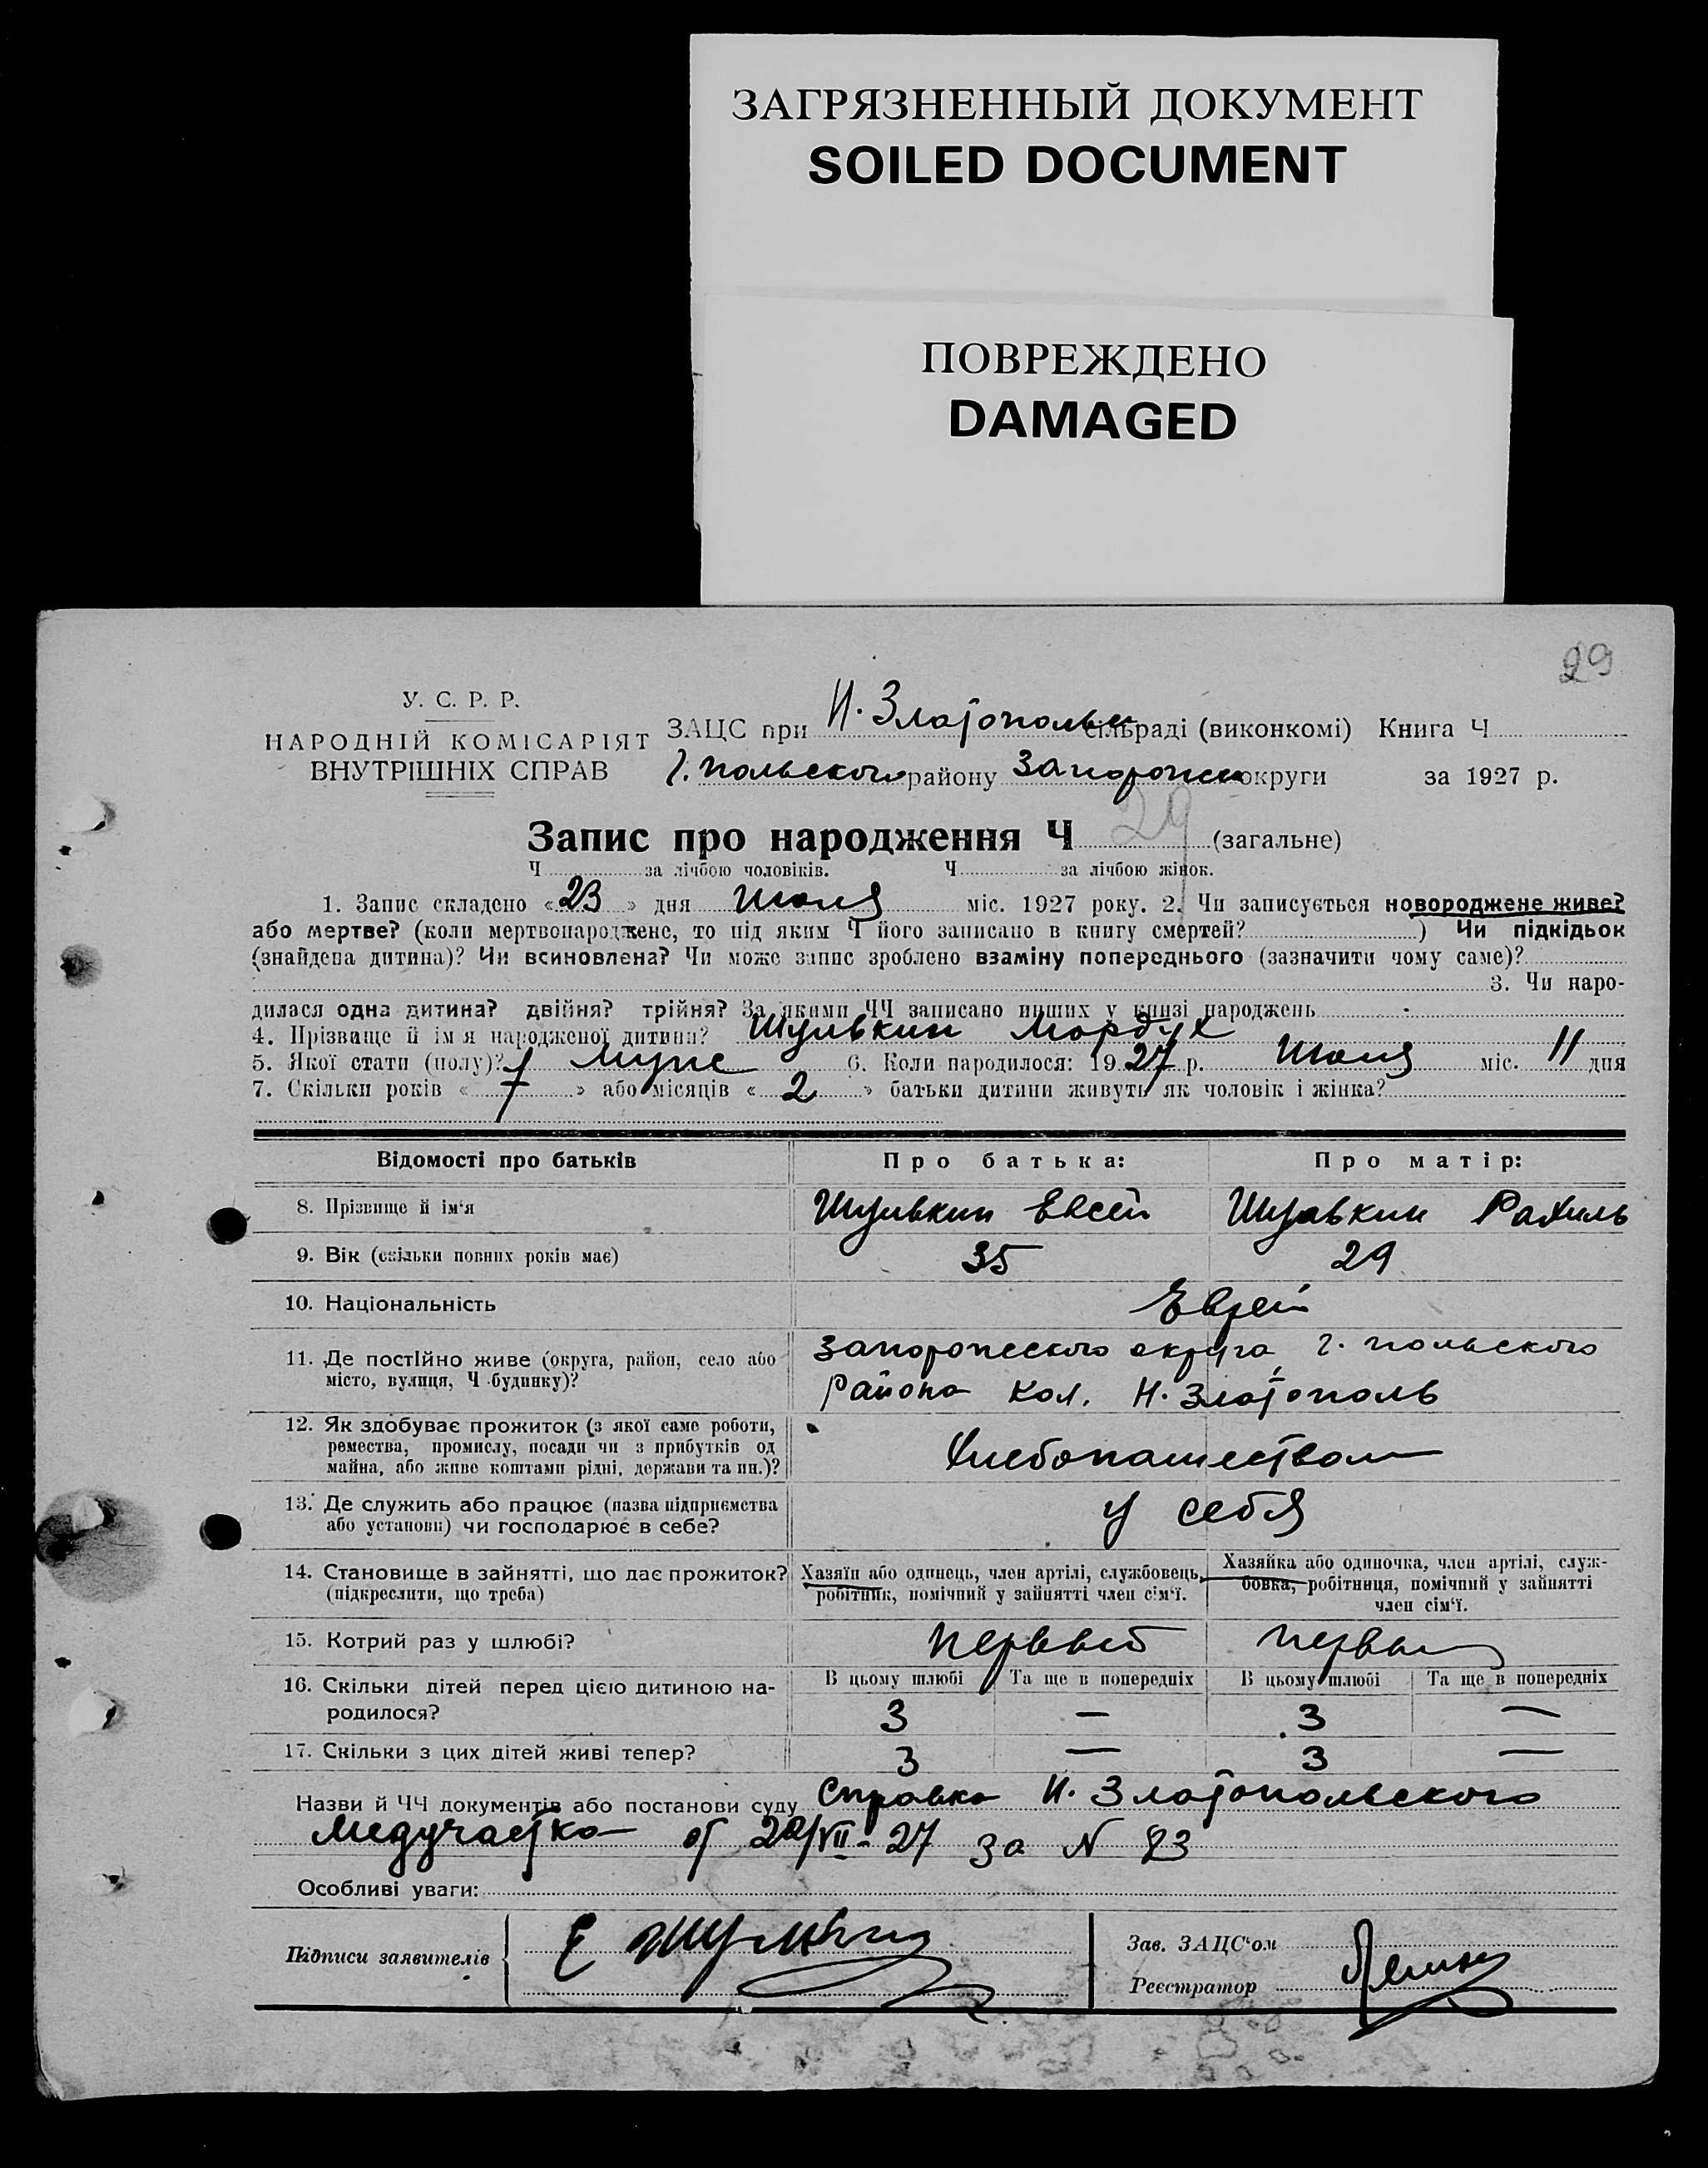 ЗАГРЯЗНЕННЫЙ ДОКУМЕНТ
SOILED DOCUMENT
ПОВРЕЖДЕНО
DAMAGED
29
У. С. Р. Р.
НАРОДНІЙ КОМІСАРІЯТ
ВНУТРІШНІХ СПРАВ
ЗАЦС при Н. Златопольск сільраді (виконкомі) Книга Ч
г. польского району Запорожск округи за 1927 р.
Запис про народження Ч 29 (загальне)
Ч за лічбою чоловіків. Ч за лічбою жінок.
1. Запис складено «23» дня Июля міс. 1927 року. 2. Чи записується новороджене живе?
або мертве? (коли мертвонароджене, то під яким Ч його записано в книгу смертей? ) Чи підкідьок
(знайдена дитина)? Чи всиновлена? Чи може запис зроблено взаміну попереднього (зазначити чому саме)?
3. Чи наро-
дилася одна дитина? двійня? трійня? За якими ЧЧ записано инших у книзі народжень
4. Прізвище й ім я народженої дитини? Шульвкин Мордух
5. Якої стати (полу)? муж 6. Коли народилося: 1927 р. Июля міс. 11 дня
7. Скільки років «7» або місяців «2» батьки дитини живуть як чоловік і жінка?
Відомості про батьків Про батька: Про матір:
8. Прізвище й ім'я Шульвкин Евсей Шульвкин Рахиль
9. Вік (скільки повних років має) 35 29
10. Національність Еврей
11. Де постІйно живе (округа, район, село або місто, вулиця, Ч будинку)? Запорожского округа г. польского
района кол. Н. Златополь
12. Як здобуває прожиток (з якої саме роботи,
ремества, промислу, посади чи з прибутків од
майна, або живе коштами рідні, держави та ин.)? Хлебопашеством
13. Де служить або працює (назва підприємства
або установи) чи господарює в себе? у себя
14. Становище в зайнятті, що дає прожиток?
(підкреслити, що треба)
Хазяїн або одинець, член артілі, службовець,
робітник, помічний у зайнятті член сім'ї.
Хазяйка або одиночка, член артілі, служ-
бовка, робітниця, помічний у зайнятті
член сім'ї.
15. Котрий раз у шлюбі? первый первы
16. Скільки дітей перед цією дитиною на-
родилося?
В цьому шлюбі Та ще в попередніх В цьому шлюбі Та ще в попередніх
3 — 3 —
17. Скільки з цих дітей живі тепер? 3 — 3 —
Назви й ЧЧ документів або постанови суду Справка Н. Златопольского
Медучастка от 22/VII-27 за N 23
Особливі уваги:
Підписи заявителів
Зав. ЗАЦС'ом
Реєстратор